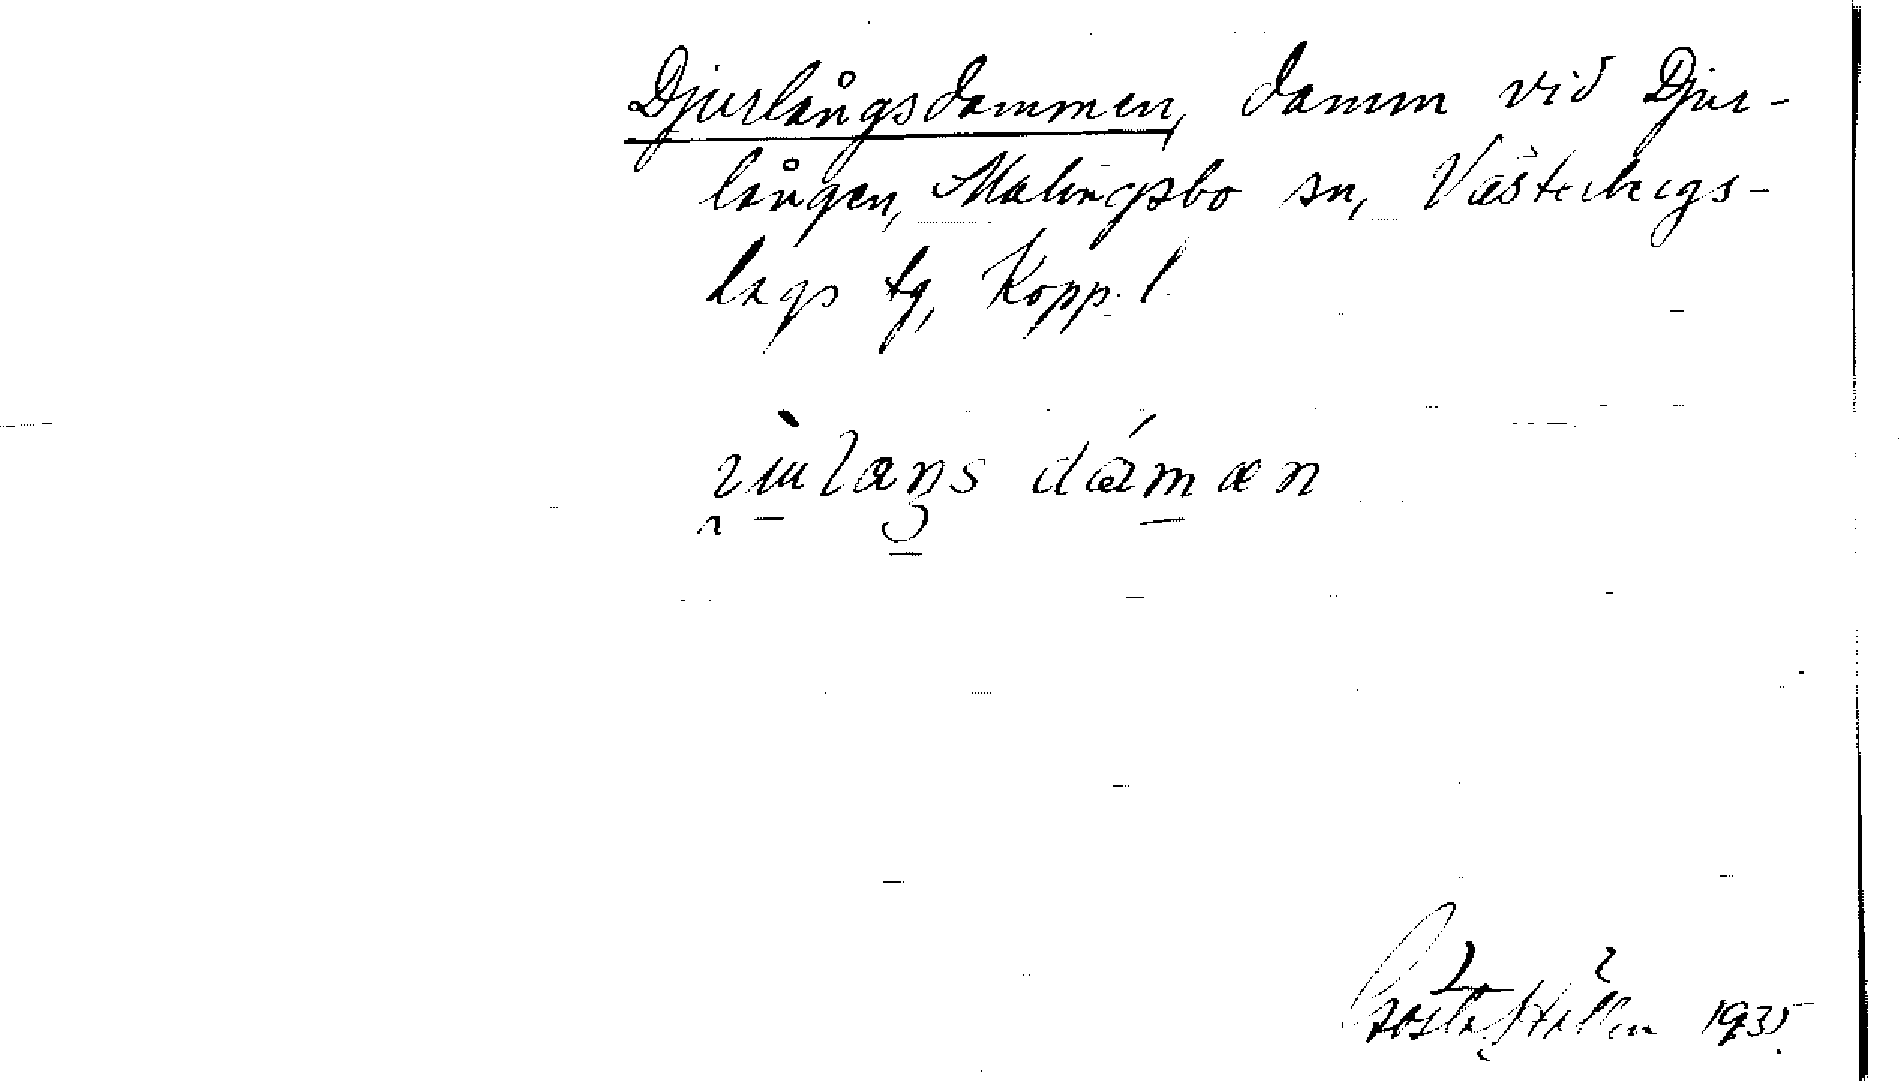 Djurlångsdammen, damm vid Djur-
lången, Malingsbo sn, Västerbergs-
lags tg, Kopp. l
dámæn
Gösta Hallén 1935.